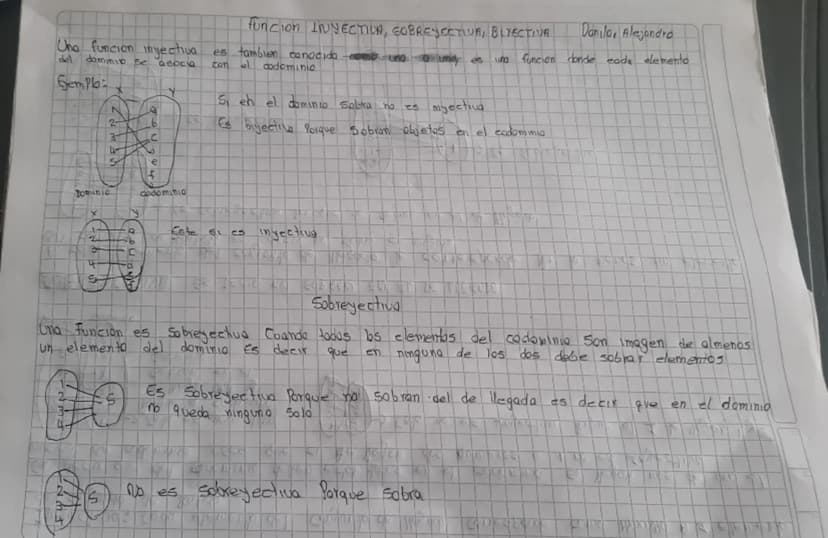 Función INYECTIVA, SOBREYECTIVA, BIYECTIVA Danilo, Alejandro
Una función inyectiva es tambien conocida como una es una funcion donde cada elemento
del dominio se asocia con el codominio
Ejemplo:
x y
Si en el dominio sobra no es inyectiva
Es inyectiva Porque sobran objetos en el codominio
1 a
2 b
3 c
4
5 e
f
Dominio codominio
x y
Este si es inyectiva
1 a
2 b
3 c
4 d
5
Sobreyectiva
Una Función es Sobreyectiva Cuando todos los elementos del codominio Son imagen de almenos
un elemento del dominio Es decir que en ninguno de los dos debe sobrar elementos
Es Sobreyectiva Porque no sobran del de llegada es decir que en el dominio
no queda ninguno solo
1
2 5
3
4
No es sobreyectiva Porque sobra
1
2 5
3
4